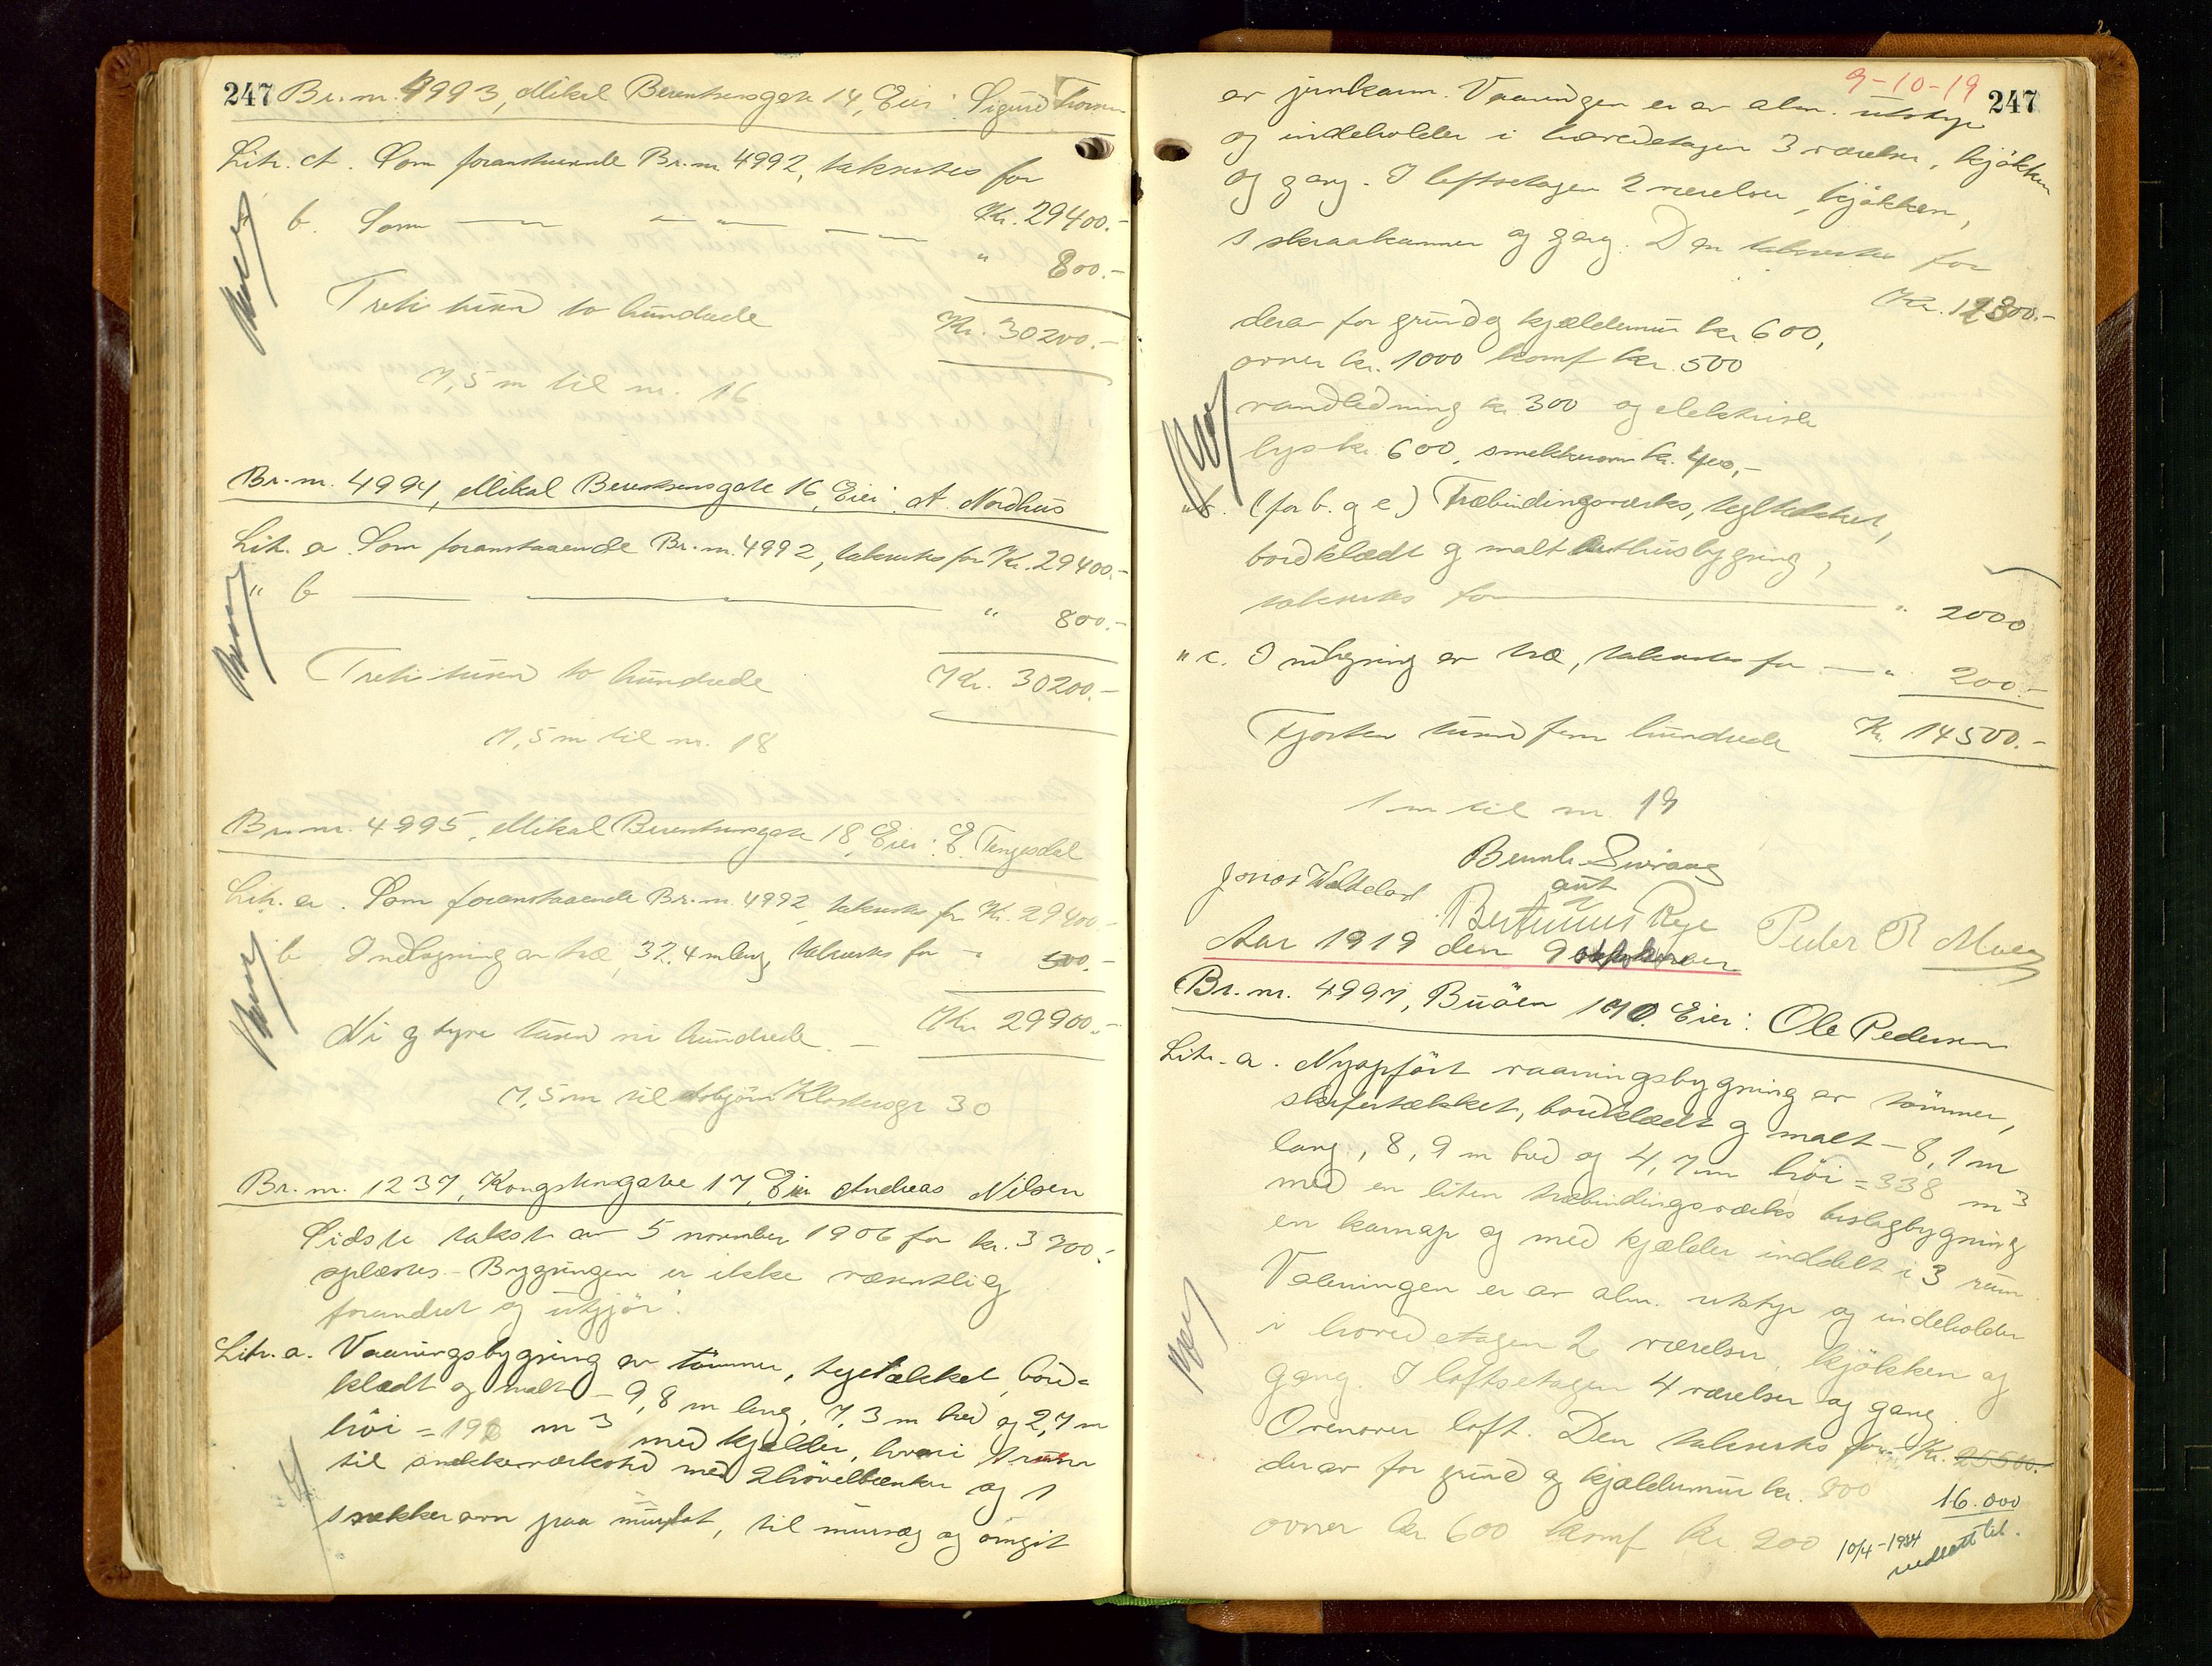 247 Br. nr. 4993, Mikal Berentsensgate 14, Eier: Sigurd
Litr. A. Som foranstaaende Br. nr. 4992, takseres for
Kr. 29400.-
b. Som — — „ — — „ 800.-
Treti tusen to hundrede Kr. 30200.-
7,5 m til nr. 16
Br. nr. 4994, Mikal Berentsensgate 16, Eier: A. Nordhus
Litr. a. Som foranstaaende Br. nr. 4992, takseres for Kr. 29400.-
„ b — „ 800.-
Treti tusen to hundrede Kr. 30200.-
7,5 m til nr. 18
Br. nr. 4995, Mikal Berentsensgate 18, Eier: E. Tengesdal
Litr. a. Som foranstaaende Br. nr. 4992, takseres for Kr. 29400.-
b Indhegning av træ, 32,4 m lang, takseres for „ 500.-
Ni og tyve tusen ni hundrede — Kr. 29900.-
7,5 m til Asbjörn Klostersgt 30
Br. nr. 1237, Kongstensgate 17, Eier Andreas Nilsen
Sidste takst av 5 november 1906 for kr. 3300.-
oplæstes. Bygningen er ikke væsentlig
forandret og utgjör:
Litr. a. Vaaningsbygning av tömmer, tegltækket, bord=
klædt og malt – 9,8 m lang, 7,3 m bred og 2,7 m
höi = 190 m3 med kjelder, hvori 1 rum
til snekkerverksted med 2 hövelbenker og 1
snekkerovn paa murfot, til murvæg og omgit
9-10-19
247
av jernkarm. Vaaningen er av alm. utstyr
og indeholder i hovedetagen 3 værelser, kjökken
og gang. I loftsetagen 2 værelser, kjökken,
1 skraakammer og gang. Den takseres for
Kr. 12300.-
derav for grund og kjældermur kr. 600,
ovner kr. 1000 komf kr. 500
vandledning kr. 300 og elektrisk
lys kr. 600, snekkerovn kr. 400,-
„ b. (for b. g e.) Træbindingsverks, tegltækket,
bordklædt og malt uthusbygning,
takseres for — „ 2000
„ c. Indhegning av træ, takseres for — „ 200.-
Fjorten tusen fem hundrede Kr. 14500.-
1 m til nr. 19
Jonas
Peder R
Aar 1919 den 9 oktober
Br. nr. 4997, Buöen 170. Eier: Ole Pedersen
Litr. a. Nyopfört vaaningsbygning av tömmer,
skifertækket, bordklædt og malt – 8,1 m
lang, 8,9 m bred og 4,7 m höi = 338 m3
med en liten træbindingsverks bislagbygning
en karnap og med kjælder inddelt i 3 rum.
Vaaningen er av alm. utstyr og indeholder
i hovedetagen 2 værelser, kjökken og
gang. I loftsetagen 4 værelser og gang.
Ovenover loft. Den takseres for Kr. 25500.-
derav for grund og kjældermur kr. 800
16.000
ovner kr. 600 komf kr. 200
10/4-1934
nedsatt til.